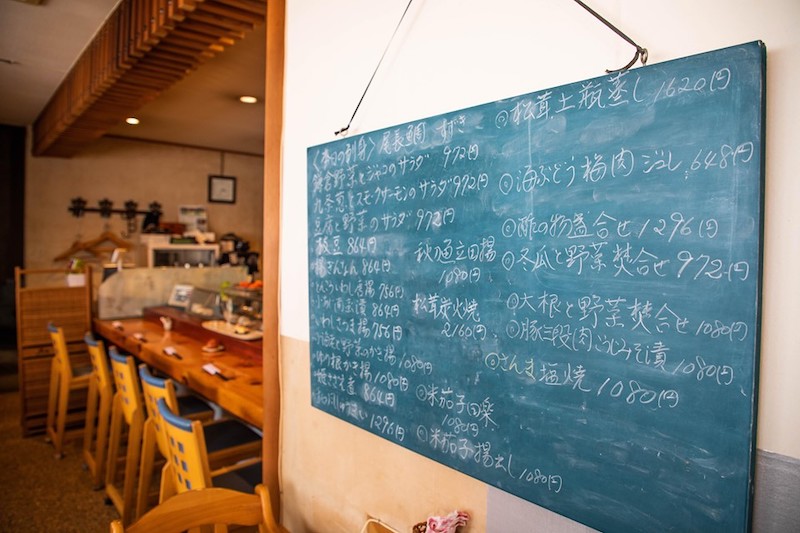 〈本日の刺身〉尾長鯛 すずき
鎌倉野菜とジャコのサラダ 972円
スモークサーモンのサラダ 972円
豆腐と野菜のサラダ 972円
枝豆 864円
864円
いわし 756円
864円
756円
と野菜のかき揚 1080円
かき揚 1080円
864円
1296円
秋
立田揚
1080円
松茸炭火焼
2160円
米茄子田楽
1080円
米茄子揚出し 1080円
松茸土瓶蒸し 1620円
海ぶどう梅肉 648円
酢の物盛合せ 1296円
冬瓜と野菜焚合せ 972円
大根と野菜焚合せ 1080円
豚三段肉ごじみそ漬 1080円
さんま塩焼 1080円